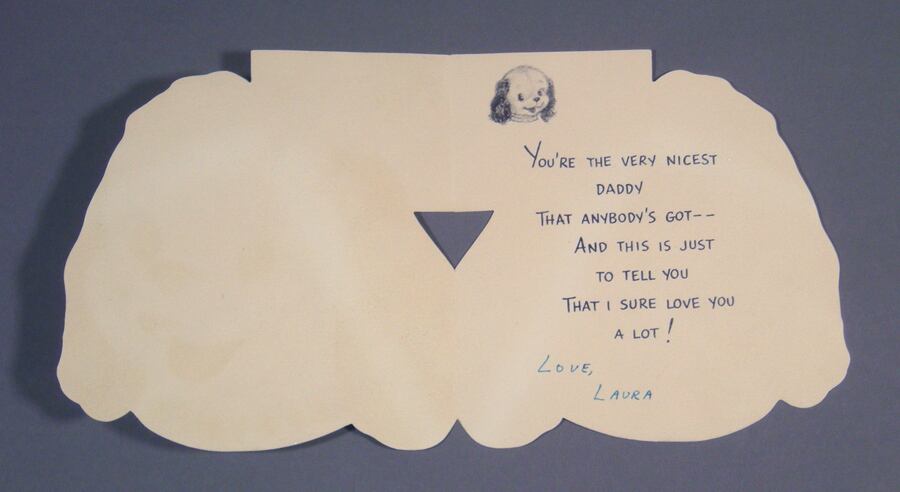 You're the very nicest
daddy
That anybody's got--
And this is just
to tell you
That I sure love you
a lot!
Love,
Laura